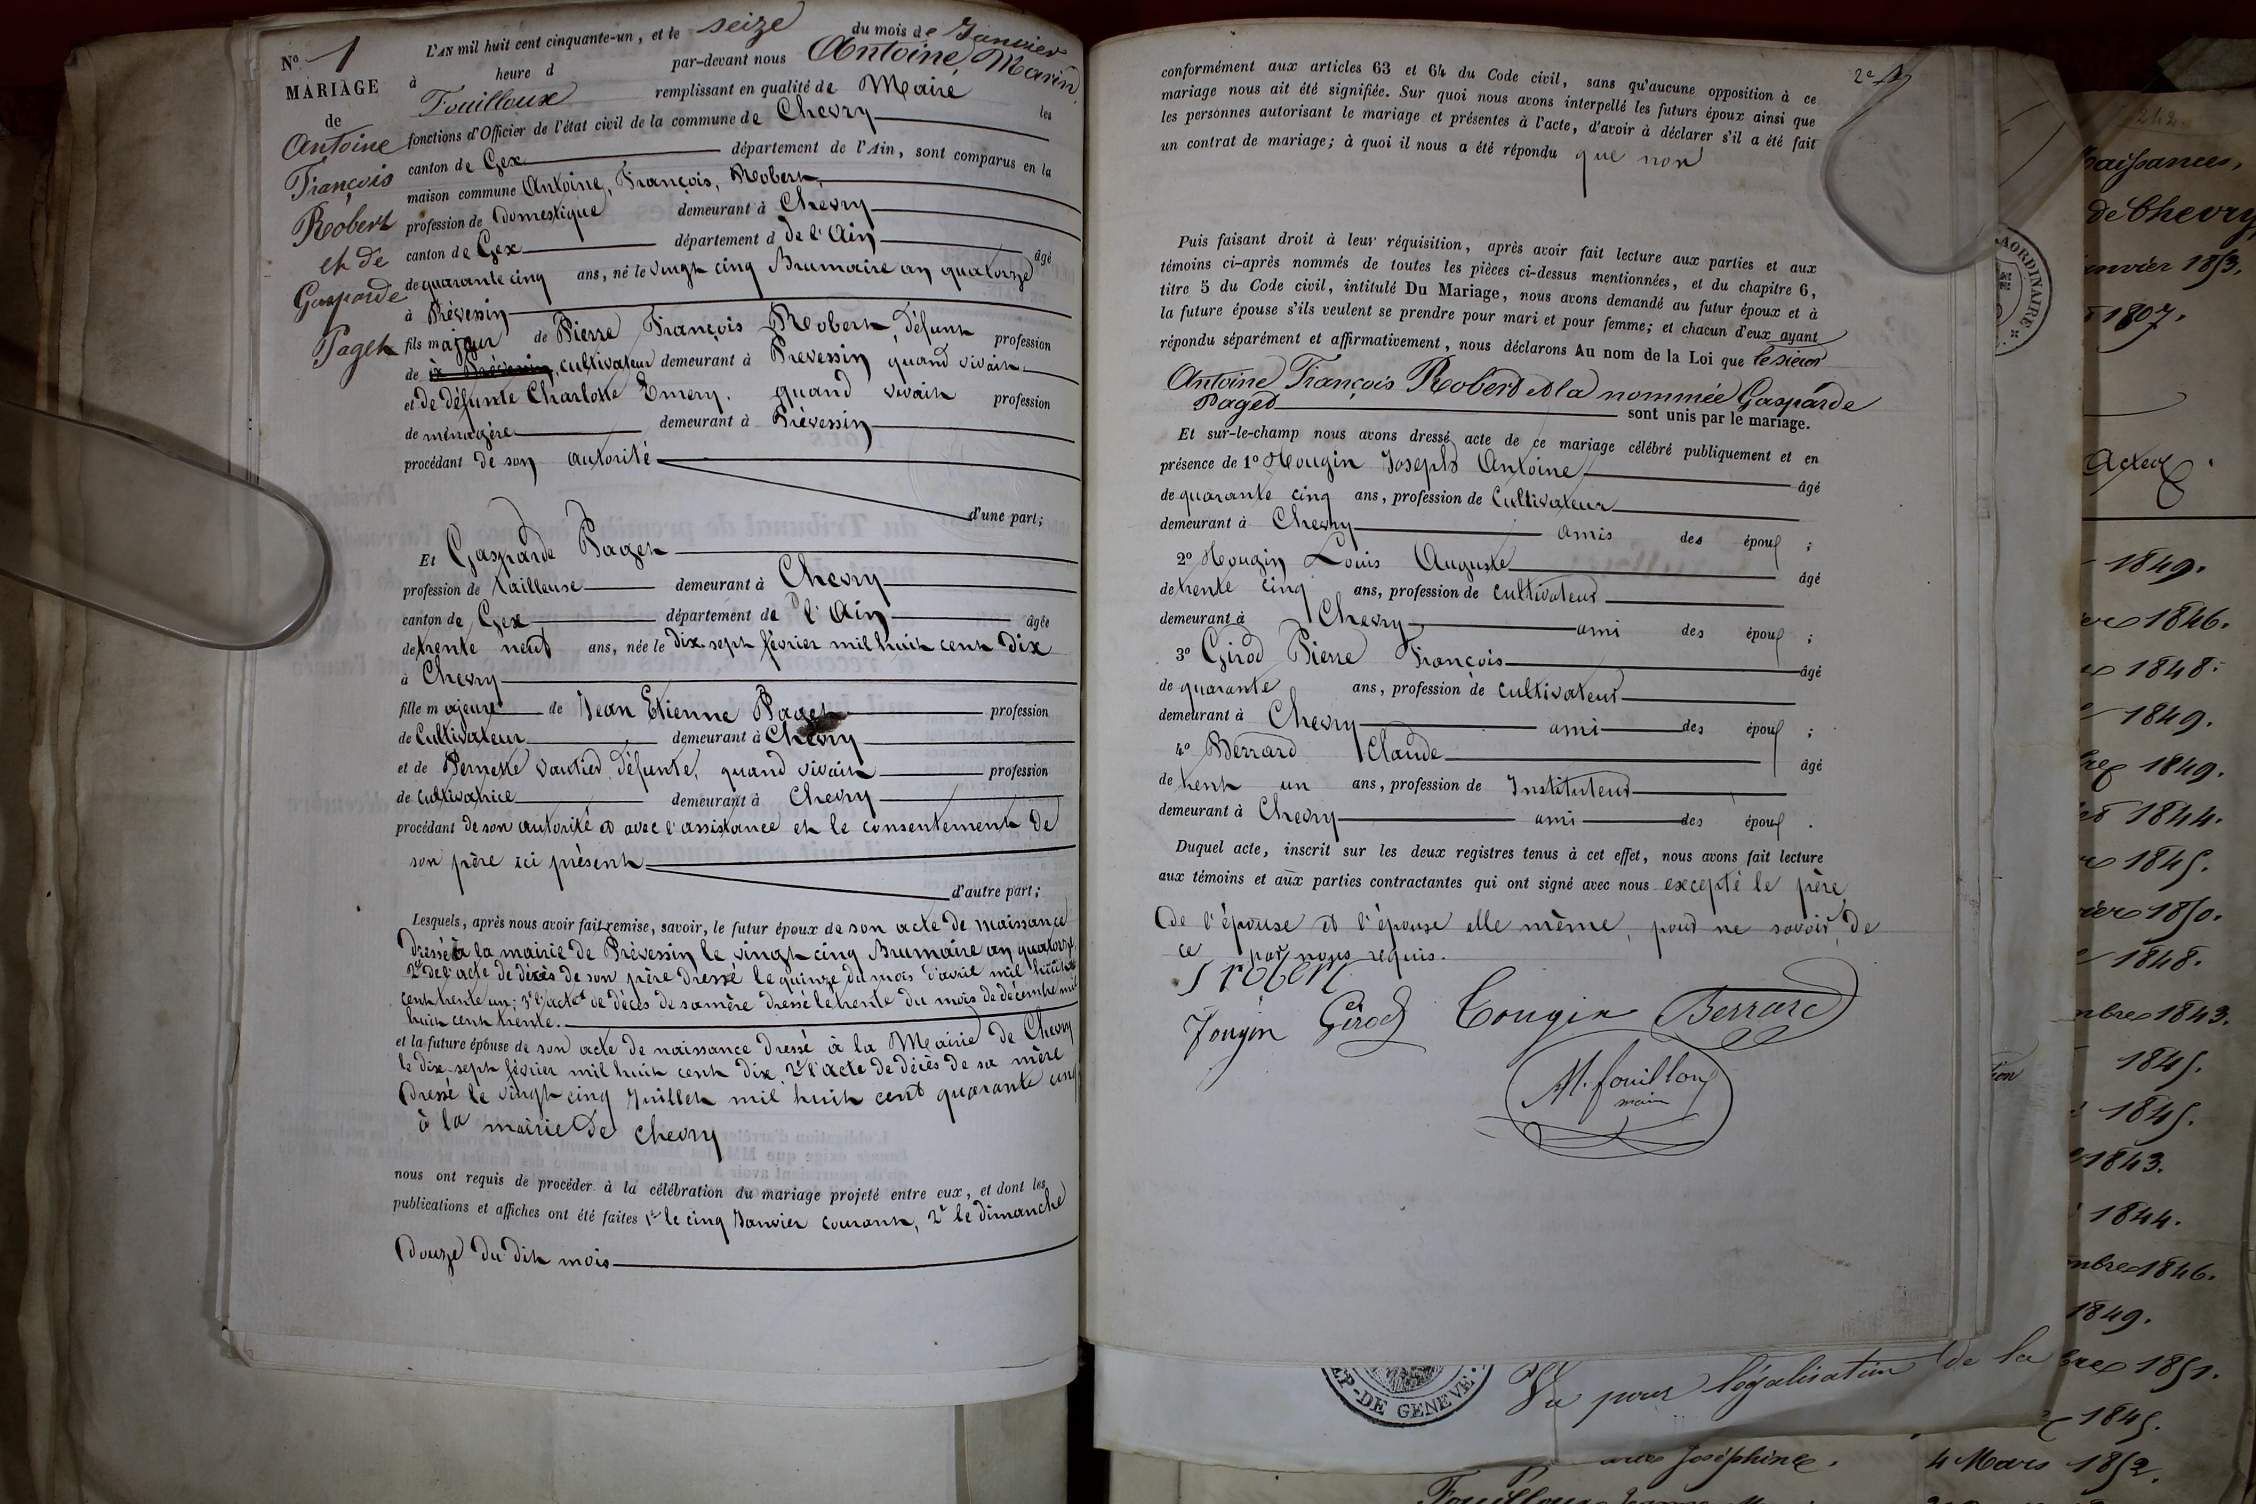 N° 1
MARIAGE
de
Antoine
François
Robert
et de
Gasparde
Paget
L'AN mil huit cent cinquante-un, et le seize du mois de Janvier
à heure d par-devant nous Antoine, Marin
Fouilloux remplissant en qualité de Maire les
fonctions d'Officier de l'état civil de la commune de Chevry
canton de Gex département de l'Ain, sont comparus en la
maison commune Antoine, François, Robert,
profession de domestique demeurant à Chevry
canton de Gex département d de l'Ain âgé
de quarante cinq ans, né le vingt cinq Brumaire an quatorze
à Prévessin
fils majeur de Pierre François Robert, défunt profession
de cultivateur demeurant à Prevessin quand vivait
et de défunte Charlotte Emery. quand vivait profession
de ménagère demeurant à Prévessin
procédant de son autorité
d'une part;
Et Gasparde Paget
profession de tailleuse demeurant à Chevry
canton de Gex département de l'Ain âgée
de trente neuf ans, née le dix-sept février mil huit cent dix
à Chevry
fille majeure de Jean Etienne Paget profession
de Cultivateur demeurant à Chevry
et de Pernette Vautier, défunte, quand vivait profession
de cultivatrice demeurant à Chevry
procédant de son autorité et avec l'assistance et le consentement de
son père ici présent
d'autre part;
Lesquels, après nous avoir fait remise, savoir, le futur époux de son acte de naissance
dressé à la mairie de Prévessin le vingt cinq Brumaire an quatorze
2° de l'acte de décès de son père dressé le quinze du mois d'avril mil huit
cent trente un; 3° l'acte de décès de sa mère dressé le trente du mois de décembre mil
huit cent trente.
et la future épouse de son acte de naissance dressé à la Mairie de Chevry
le dix-sept février mil huit cent dix. 2° l'acte de décès de sa mère
dressé le vingt cinq Juillet mil huit cent quarante cinq
à la mairie de Chevry
nous ont requis de procéder à la célébration du mariage projeté entre eux, et dont les
publications et affiches ont été faites 1° le cinq Janvier courant, 2° le dimanche
douze du dit mois
2e
conformément aux articles 63 et 64 du Code civil, sans qu'aucune opposition à ce
mariage nous ait été signifiée. Sur quoi nous avons interpellé les futurs époux ainsi que
les personnes autorisant le mariage et présentes à l'acte, d'avoir à déclarer s'il a été fait
un contrat de mariage; à quoi il nous a été répondu que non
Puis faisant droit à leur réquisition, après avoir fait lecture aux parties et aux
témoins ci-après nommés de toutes les pièces ci-dessus mentionnées, et du chapitre 6,
titre 5 du Code civil, intitulé Du Mariage, nous avons demandé au futur époux et à
la future épouse s'ils veulent se prendre pour mari et pour femme; et chacun d'eux ayant
répondu séparément et affirmativement, nous déclarons Au nom de la Loi que le sieur
Antoine François Robert et la nommée Gasparde
Paget sont unis par le mariage.
Et sur-le-champ nous avons dressé acte de ce mariage célébré publiquement et en
présence de 1° Hougin Joseph Antoine âgé
de quarante cinq ans, profession de Cultivateur
demeurant à Chevry amis des époux ;
2° Hougin Louis Auguste âgé
de trente cinq ans, profession de cultivateur
demeurant à Chevry ami des époux ;
3° Girod Pierre François âgé
de quarante ans, profession de cultivateur
demeurant à Chevry ami des époux ;
4° Berrard Claude âgé
de trent un ans, profession de Instituteur
demeurant à Chevry ami des époux .
Duquel acte, inscrit sur les deux registres tenus à cet effet, nous avons fait lecture
aux témoins et aux parties contractantes qui ont signé avec nous excepté le père
de l'épouse et l'épouse elle même, pour ne savoir, de
ce par nous requis.
robert
Girod Berrard
M. fouilloux
maire
naissances,
de Chevry
anvier 1853.
1807.
1849.
1846.
1848.
1849.
1849.
1844.
1845.
1850.
1848.
mbre 1843.
1845.
1845.
1843.
1844.
mbre 1846.
1849.
bre 1851.
1845.
AORDINAIRE
DEP. DE GENEVE
Vu pour légalisation de la
Joséphine. 4 Mars 1852.